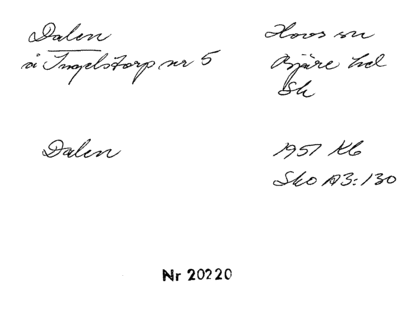 Dalen
å Ingelstorp nr 5
Hovs sn
Bjäre hd
Sk
Dalen
1951 Kb
Sko A3:130
Nr 20220